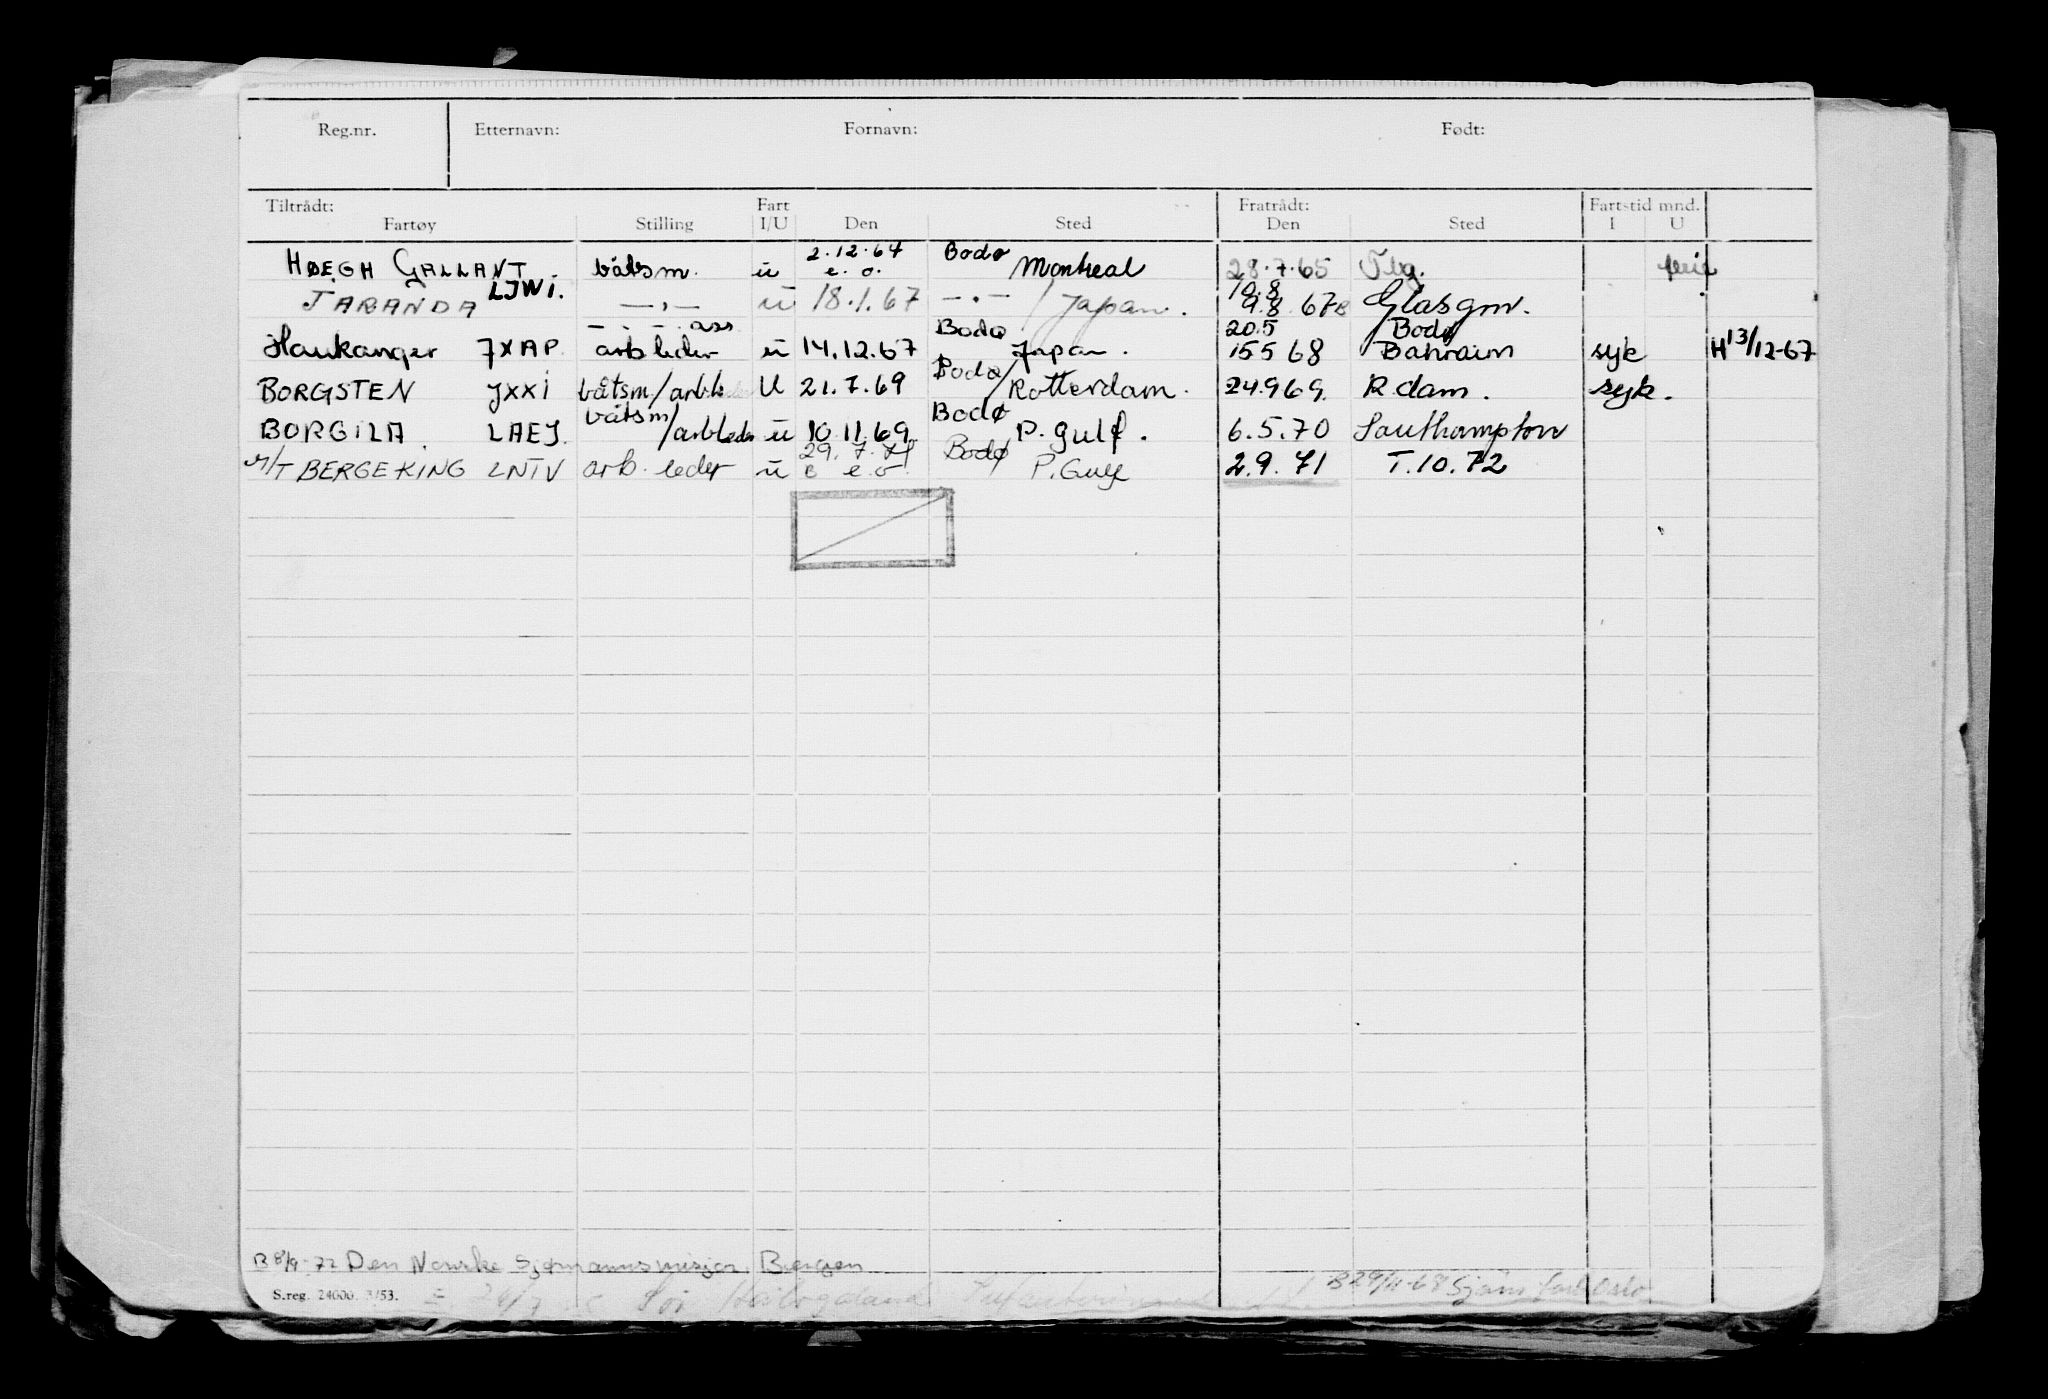 Reg.nr. Etternavn: Fornavn: Født:
Tiltrådt: Fart Fratrådt: Fartstid mnd.
Fartøy Stilling I/U Den Sted Den Sted I U
2.12.64 Bodø
HØEGH GALLANT båtsm. u e.o. Montreal 28.7.65 Tbg. ferie
LJWI. 10.8
TARANDA —"— u 18.1.67 —"— / Japan. 9.8.67 Glasgow.
—"— ass Bodø 20.5 Bodø
Haukanger JXAP arb leder u 14.12.67 Japan. 15 5 68 Bahrain syk H 13/12-67
Bodø
BORGSTEN JXXI båtsm/arbleder U 21.7.69 / Rotterdam. 24.9 69. R.dam. syk.
båtsm Bodø
BORGILA. LAEJ. /arbleder u 10.11.69 P. gulf. 6.5.70 Southampton
29.7.71 Bodø
M/T BERGEKING LNTV arb. leder u B e.o. / P. Gulf 2.9.71 T.10.72
B 8/9-72 Den Norske Sjømannsmisjon Bergen
B 29/11-68 Sjøm Oslo
S.reg. 24000. 3/53. Sør Hålogaland